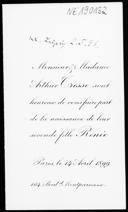 NE 190132
Monsieur & Madame
Arthur Cosse sont
heureux de vous faire part
de la naissance de leur
seconde fille Renée
Paris, le 14 Avril 1899
164 Boul.d Montparnasse